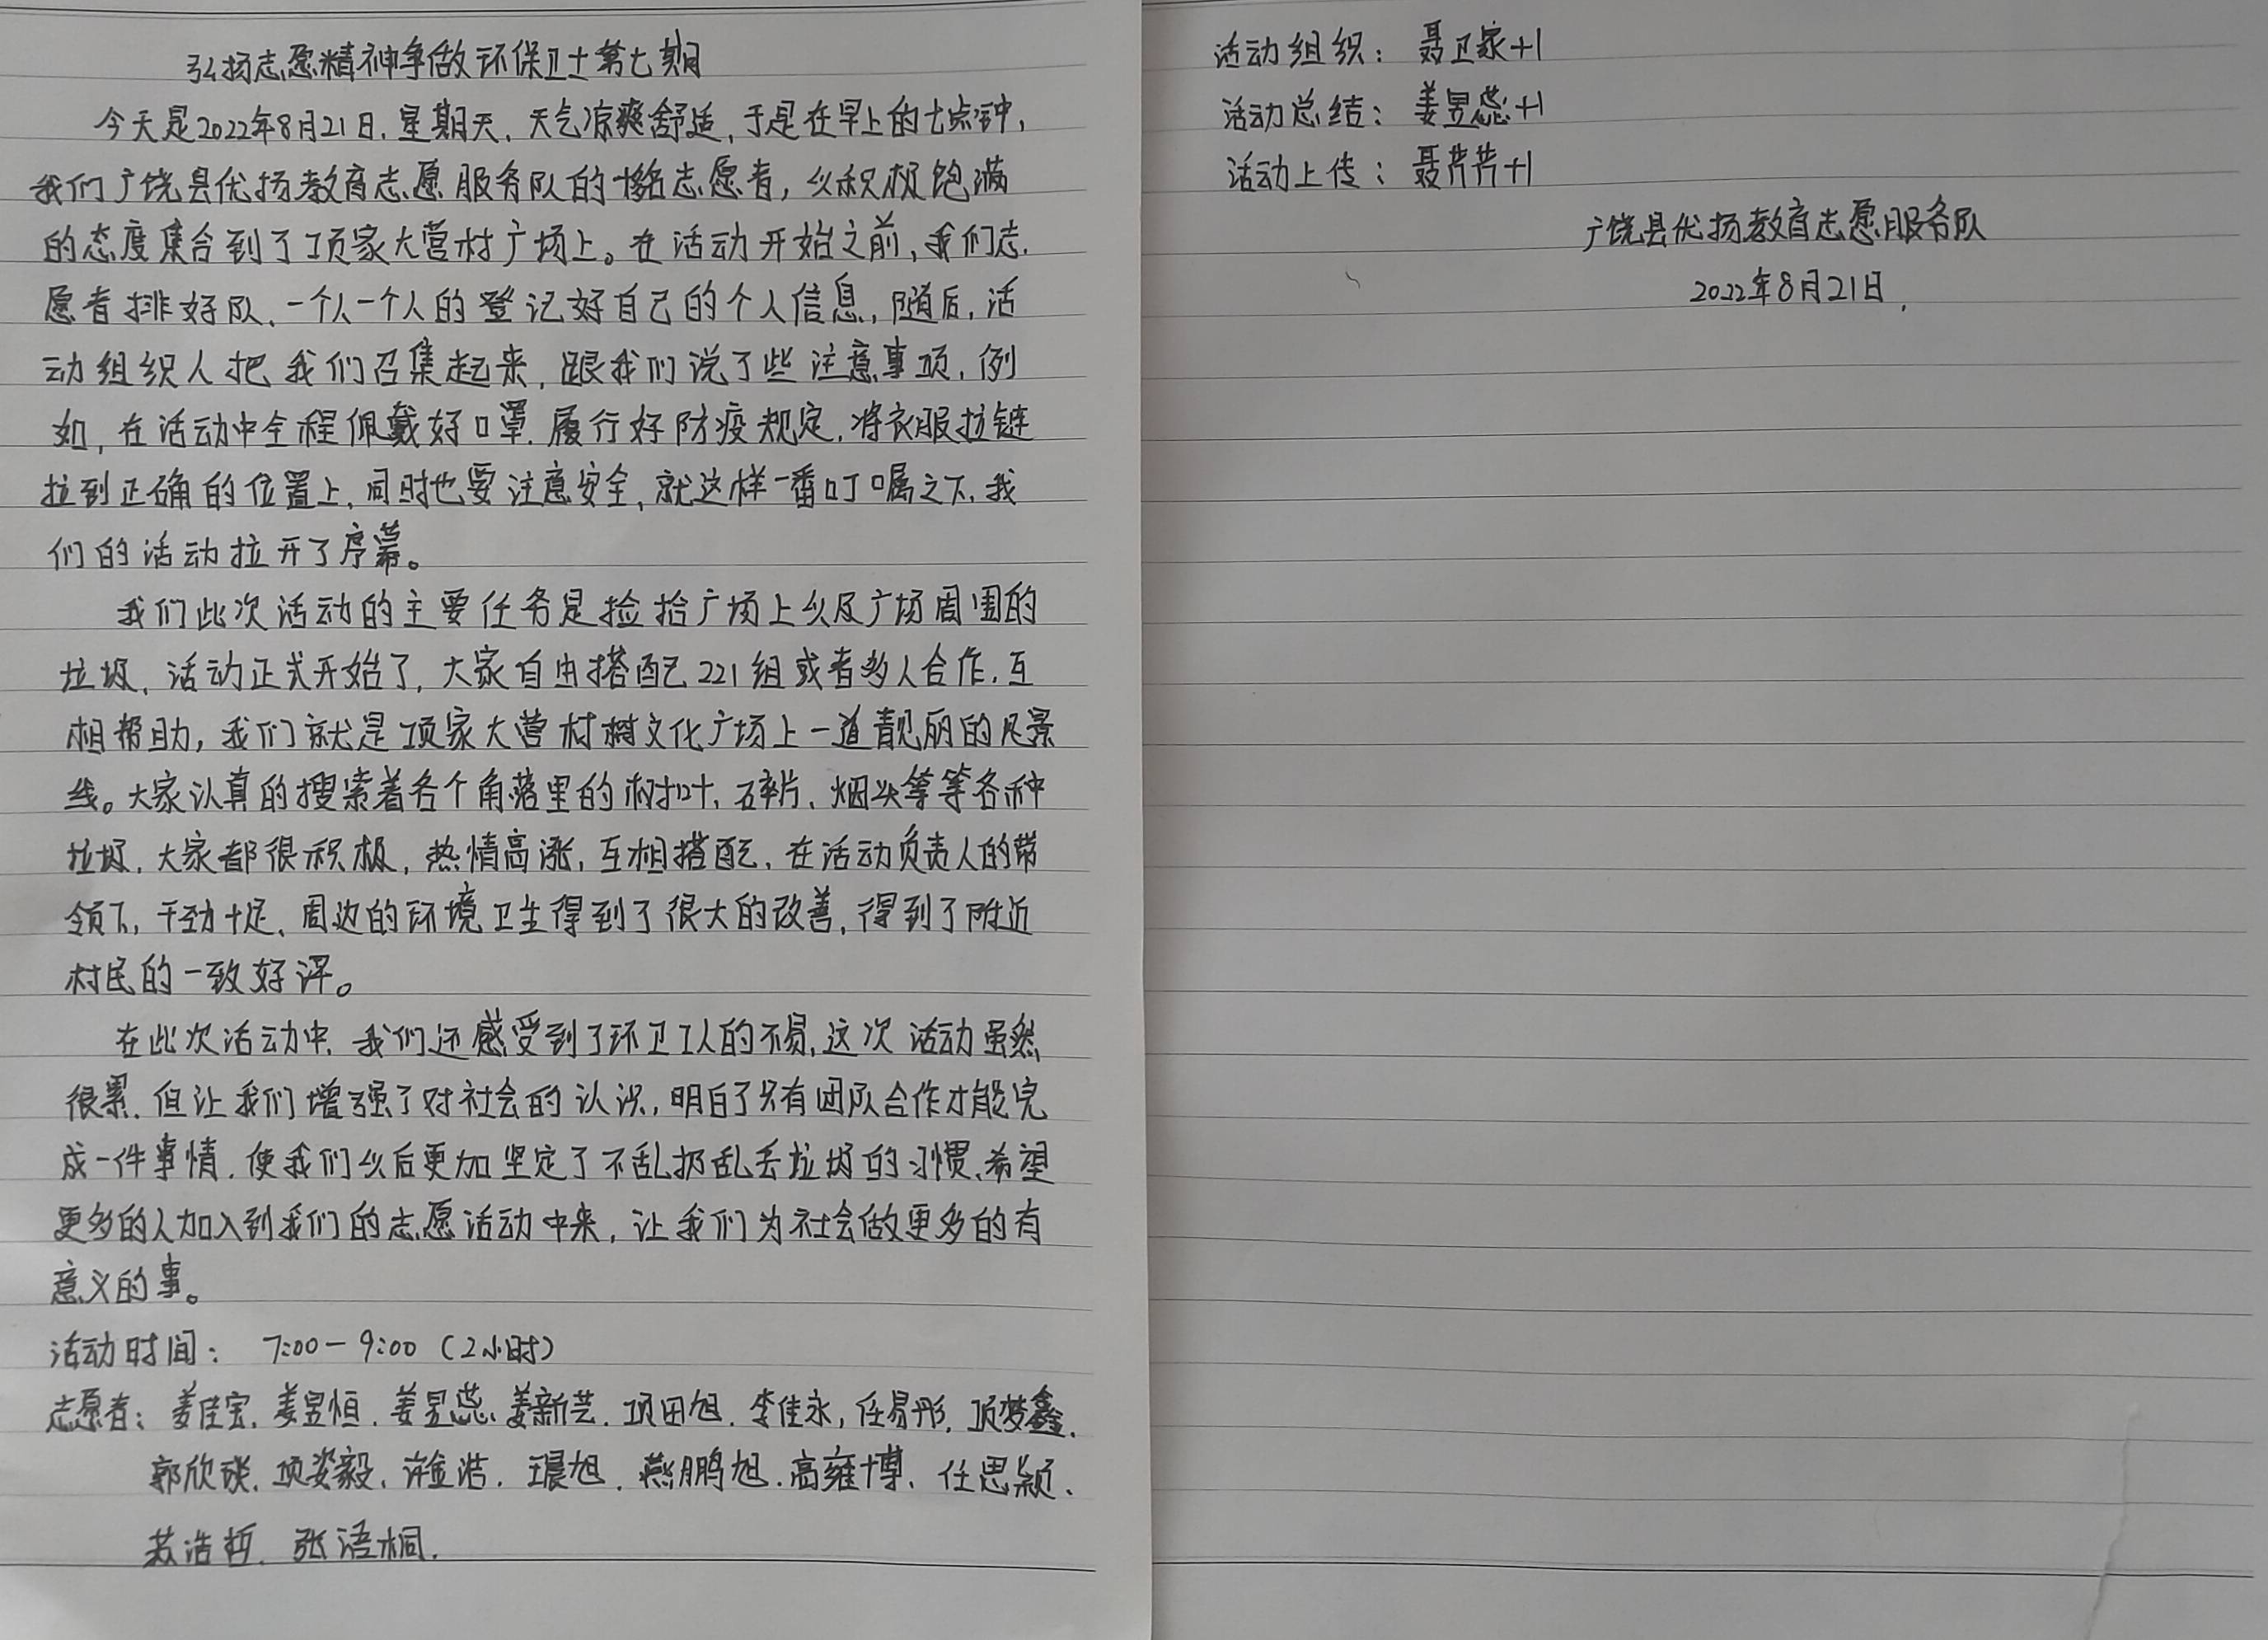 弘扬志愿精神争做环保卫士第七期
今天是2022年8月21日,星期天,天气凉爽舒适,于是在早上的七点钟,
我们广饶县优扬教育志愿服务队的十多名志愿者,以积极饱满
的态度集合到了项家大营村广场上。在活动开始之前,我们志
愿者排好队、一个人一个人的登记好自己的个人信息,随后,活
动组织人把我们召集起来,跟我们说了些注意事项,例
如,在活动中全程佩戴好口罩.履行好防疫规定,将衣服拉链
拉到正确的位置上,同时也要注意安全,就这样一番叮嘱之下,我
们的活动拉开了序幕。
我们此次活动的主要任务是捡拾广场上以及广场周围的
垃圾,活动正式开始了,大家自由搭配221组或者多人合作,互
相帮助,我们就是项家大营村村文化广场上一道靓丽的风景
线。大家认真的搜索着各个角落里的树叶、碎片、烟头等等各种
垃圾,大家都很积极,热情高涨,互相搭配,在活动负责人的带
领下,干劲十足、周边的环境卫生得到了很大的改善,得到了附近
村民的一致好评。
在此次活动中,我们还感受到了环卫工人的不易,这次活动虽然
很累,但让我们增强了对社会的认识,明白了只有团队合作才能完
成一件事情,使我们以后更加坚定了不乱扔乱丢垃圾的习惯,希望
更多的人加入到我们的志愿活动中来,让我们为社会做更多的有
意义的事。
活动时间: 7:00-9:00(2小时)
志愿者:姜佳宝、姜昱恒、姜昱蕊、姜新芸、项田旭、李佳永,任易彤,项梦鑫、
郭欣琰、项姿毅、许金浩、王晨旭、燕鹏旭、高雍博、任思颖、
苏浩哲、张浯桐.
活动组织: 聂卫家+1
活动总结: 姜昱蕊+1
活动上传: 聂芹芹+1
广饶县优扬教育志愿服务队
2022年8月21日.